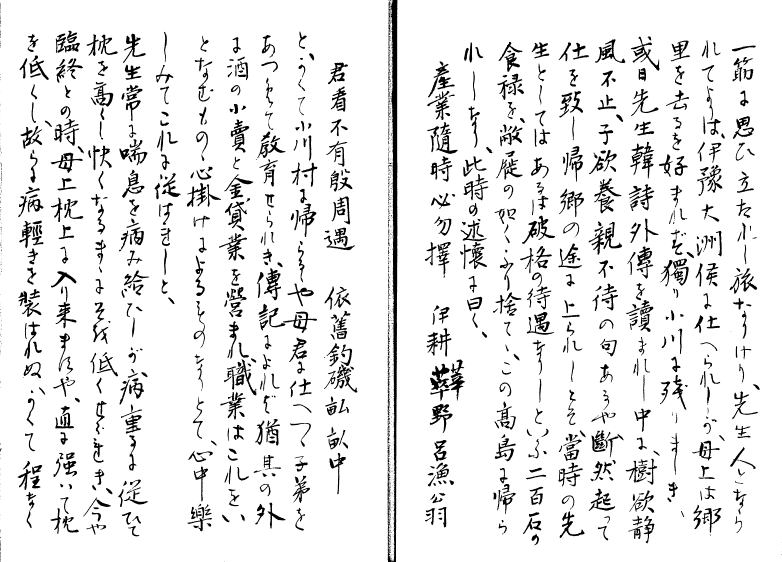 一筋に思ひ立たれし旅なりけり、先生人となら
れてよりは、伊豫大洲侯に仕へられしが、母上は郷
里を去るを好まれず、獨り小川に残りましき、
或日先生韓詩外傳を讀まれし中に、樹欲静
風不止、子欲養親不待の句あるや、斷然起って
仕を致し帰郷の途に上られしとぞ、當時の先
生としてはあるは破格の待遇なりしといふ二百石の
食禄を、敝屣の如くふり捨てゝ、この高島に帰ら
れしなり、此時の述懷に曰く、
産業隨時心勿擇　伊耕莘野呂漁翁
君看不有殷周遇　依舊釣磯畆畝中
と、かくて小川村に帰らるゝや母君に仕へつゝ子弟を
あつめて教育せられき、傳記によれば猶其の外
に酒の小賣と金貸業を營まれ、職業はこれをい
となむもの、心掛けによるものなりとて、心中樂
しみてこれに従はれしと、
先生常に喘息を病み給ひしが、病重るに従ひて
枕を高くし快くなるまゝに其を低くせられき、今や
臨終との時、母上枕上に入り来ますや、直に強いて枕
を低くし、故らに病軽きを装はれぬ、かくて程なく